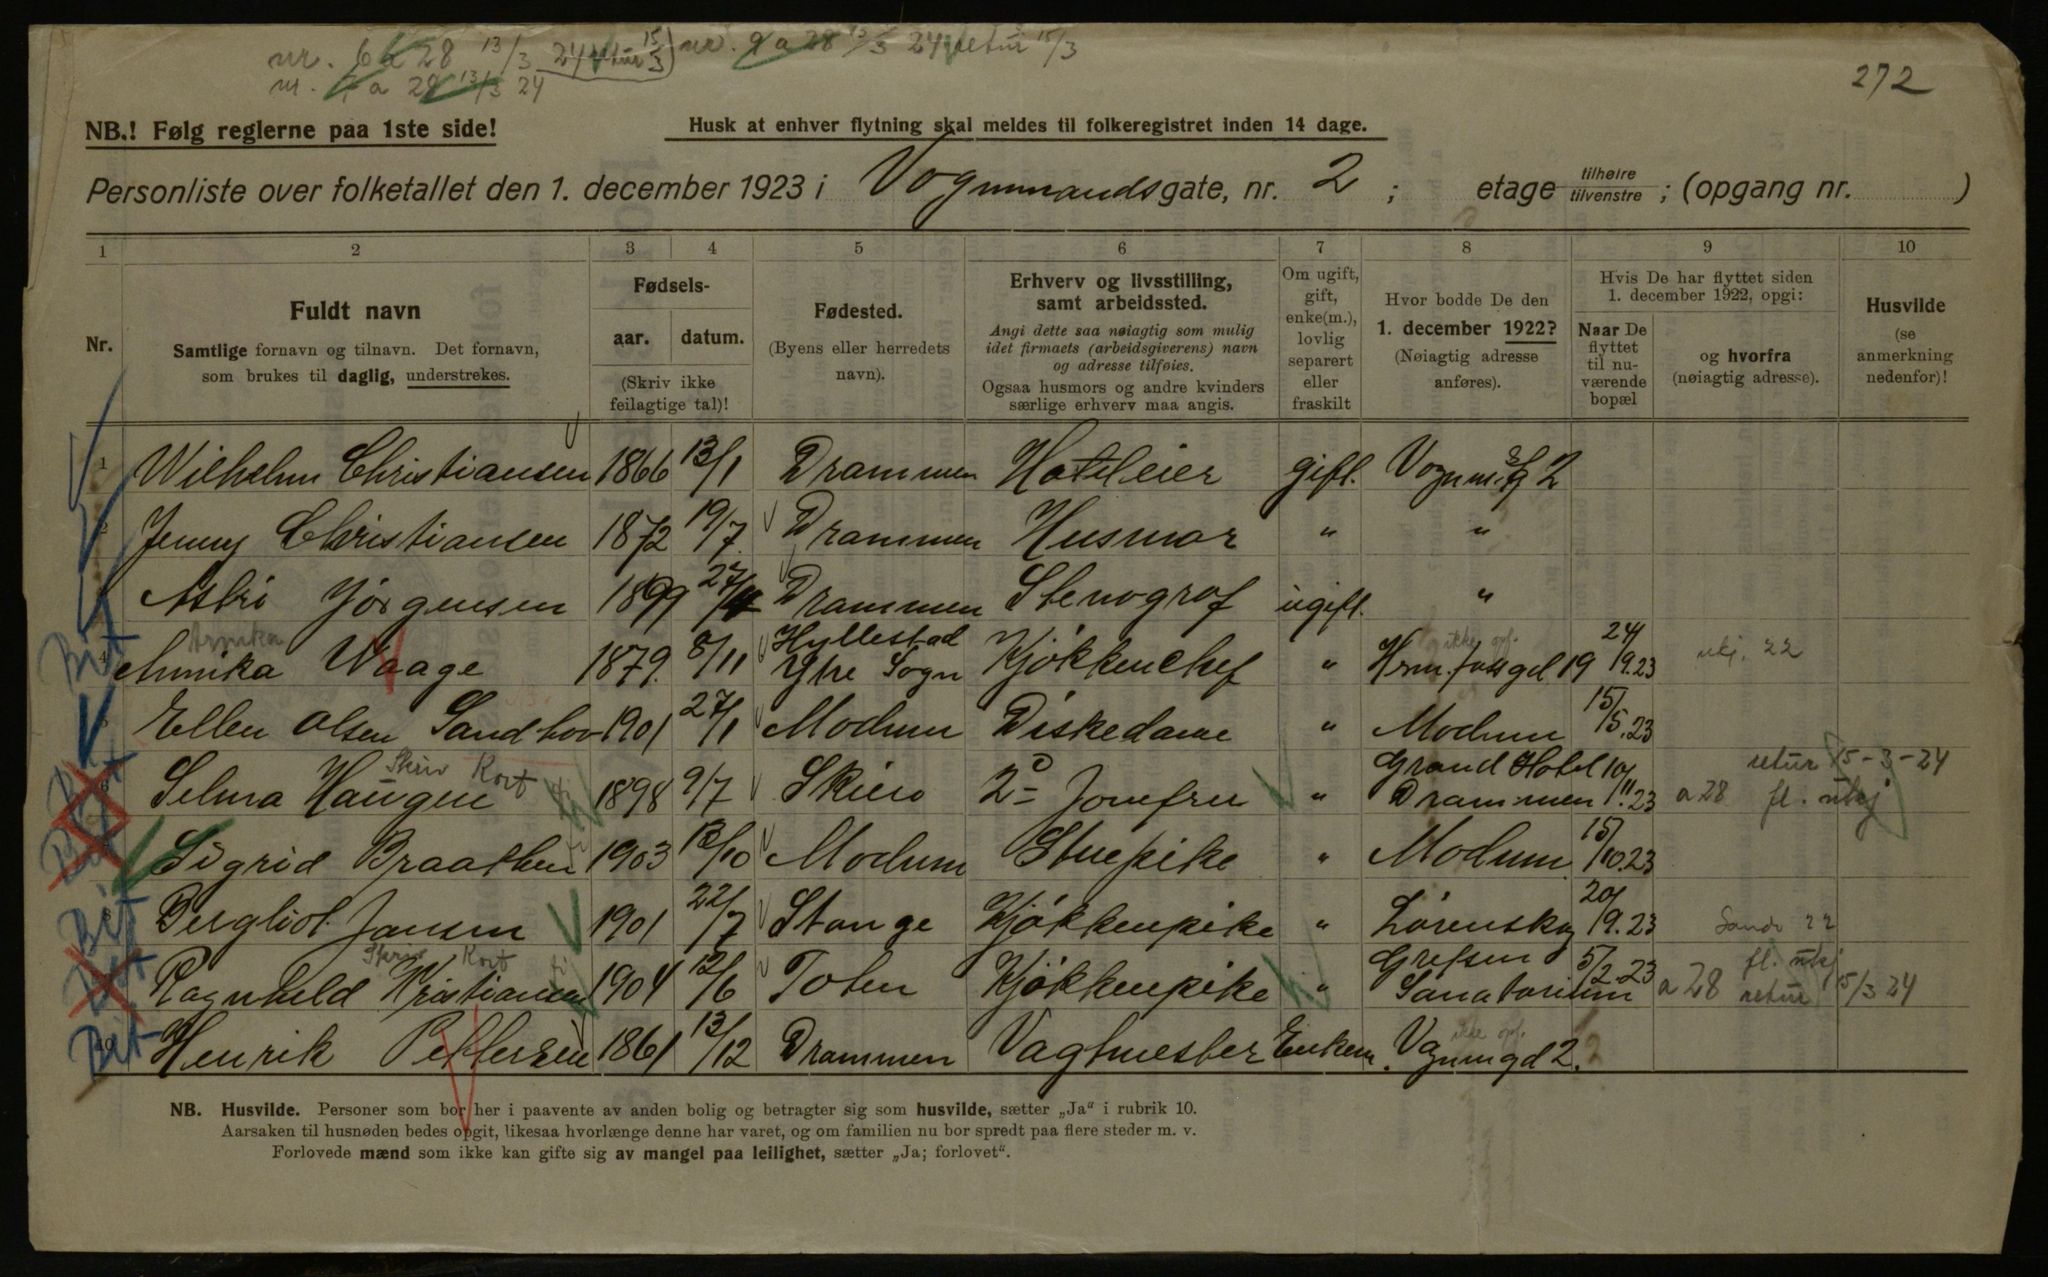 nr. 6 a 28 13/3 24 retur 15/3) nr. 9 a 28 13/3 24 retur 15/3
nr. 7 a 28 13/3 24
272
NB.! Følg reglerne paa 1ste side!
Husk at enhver flytning skal meldes til folkeregistret inden 14 dage.
Personliste over folketallet den 1. december 1923 i Vognmandsgate, nr. 2; etage tilhøire tilvenstre; (opgang nr. )
1 2 3 4 5 6 7 8 9 10
Nr.
Fuldt navn
Samtlige fornavn og tilnavn. Det fornavn,
som brukes til daglig, understrekes.
Fødsels-
aar. datum.
(Skriv ikke
feilagtige tal)!
Fødested.
(Byens eller herredets
navn).
Erhverv og livsstilling,
samt arbeidssted.
Angi dette saa nøiagtig som mulig
idet firmaets (arbeidsgiverens) navn
og adresse tilføies.
Ogsaa husmors og andre kvinders
særlige erhverv maa angis.
Om ugift,
gift,
enke(m.),
lovlig
separert
eller
fraskilt
Hvor bodde De den
1. december 1922?
(Nøiagtig adresse
anføres).
Hvis De har flyttet siden
1. december 1922, opgi:
Naar De
flyttet
til nu-
værende
bopæl
og hvorfra
(nøiagtig adresse).
Husvilde
(se
anmerkning
nedenfor)!
1 Wilhelm Christiansen 1866 13/1 Drammen Hoteleier gift. Vognm.g 2
2 Jenny Christiansen 1872 19/7. Drammen Husmor " "
Astri Jörgensen 1899 27/4 Drammen Stenograf ugift. "
Arnika ikke opf.
Bit 4 Annika Waage 1879. 8/11 Hyllestad Ytre Sogn Kjøkkenchef " Hrm. fossgd 19 24/9.23 ukj. 22
5 Ellen Olsen Sandbo 1901 27/1 Modum Diskedame " Modum 15/5.23
Skriv Kort
6 Selma Haugen 1898 9/7 Skien 2= Jomfru " Grand Hotel Drammen 10/11.23 a 28 fl. ukj retur 15-3-24
Sigrid Braathen 1903 13/10 Modum Stuepike " Modum 15/10.23
Bit 8 Bergliot Jansen 1901 22/7 Stange Kjøkkenpike " Lørenskog 20/9.23 22
Skriv Kort
Ragnhild Kristiansen 1904 12/6 Toten Kjøkkenpike " Grefsen Sanatorium 5/2-23 a 28 fl. ukj retur 15/3 24
ikke opf.
Bit 10 Henrik Pettersen 1861 13/12 Drammen Vagtmester Enkem. Vognmgd 2.
NB. Husvilde. Personer som bor her i paavente av anden bolig og betragter sig som husvilde, sætter „Ja“ i rubrik 10.
Aarsaken til husnøden bedes opgit, likesaa hvorlænge denne har varet, og om familien nu bor spredt paa flere steder m. v.
Forlovede mænd som ikke kan gifte sig av mangel paa leilighet, sætter „Ja; forlovet“.